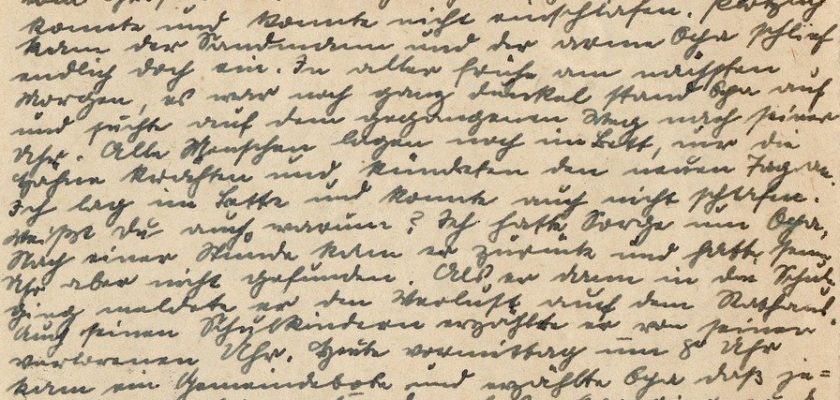 konnte und konnte nicht einschlafen. Plötzlich
kam der Sandmann und der arme Opa schlief
endlich doch ein. In aller Frühe am nächsten
Morgen, es war noch ganz dunkel stand Opa auf
und suchte auf dem gegangenen Weg nach seiner
Uhr. Alle Menschen lagen noch im Bett, nur die
Hähne krachten und kündeten den neuen Tag an.
Ich lag im Bette und konnte auch nicht schlafen.
Weißt Du auch warum? Ich hatte Sorge um Opa,
Nach einer Stunde kam er zurück und hatte seine
Uhr aber nicht gefunden. Als er dann in die Schule
ging meldete er den Verlust auf dem Rathaus.
Auch seinen Schulkindern erzählte er von seiner
verlorenen Uhr. Heute vormittag um 8 Uhr
kam ein Gemeindebote und erzählte Opa daß je=